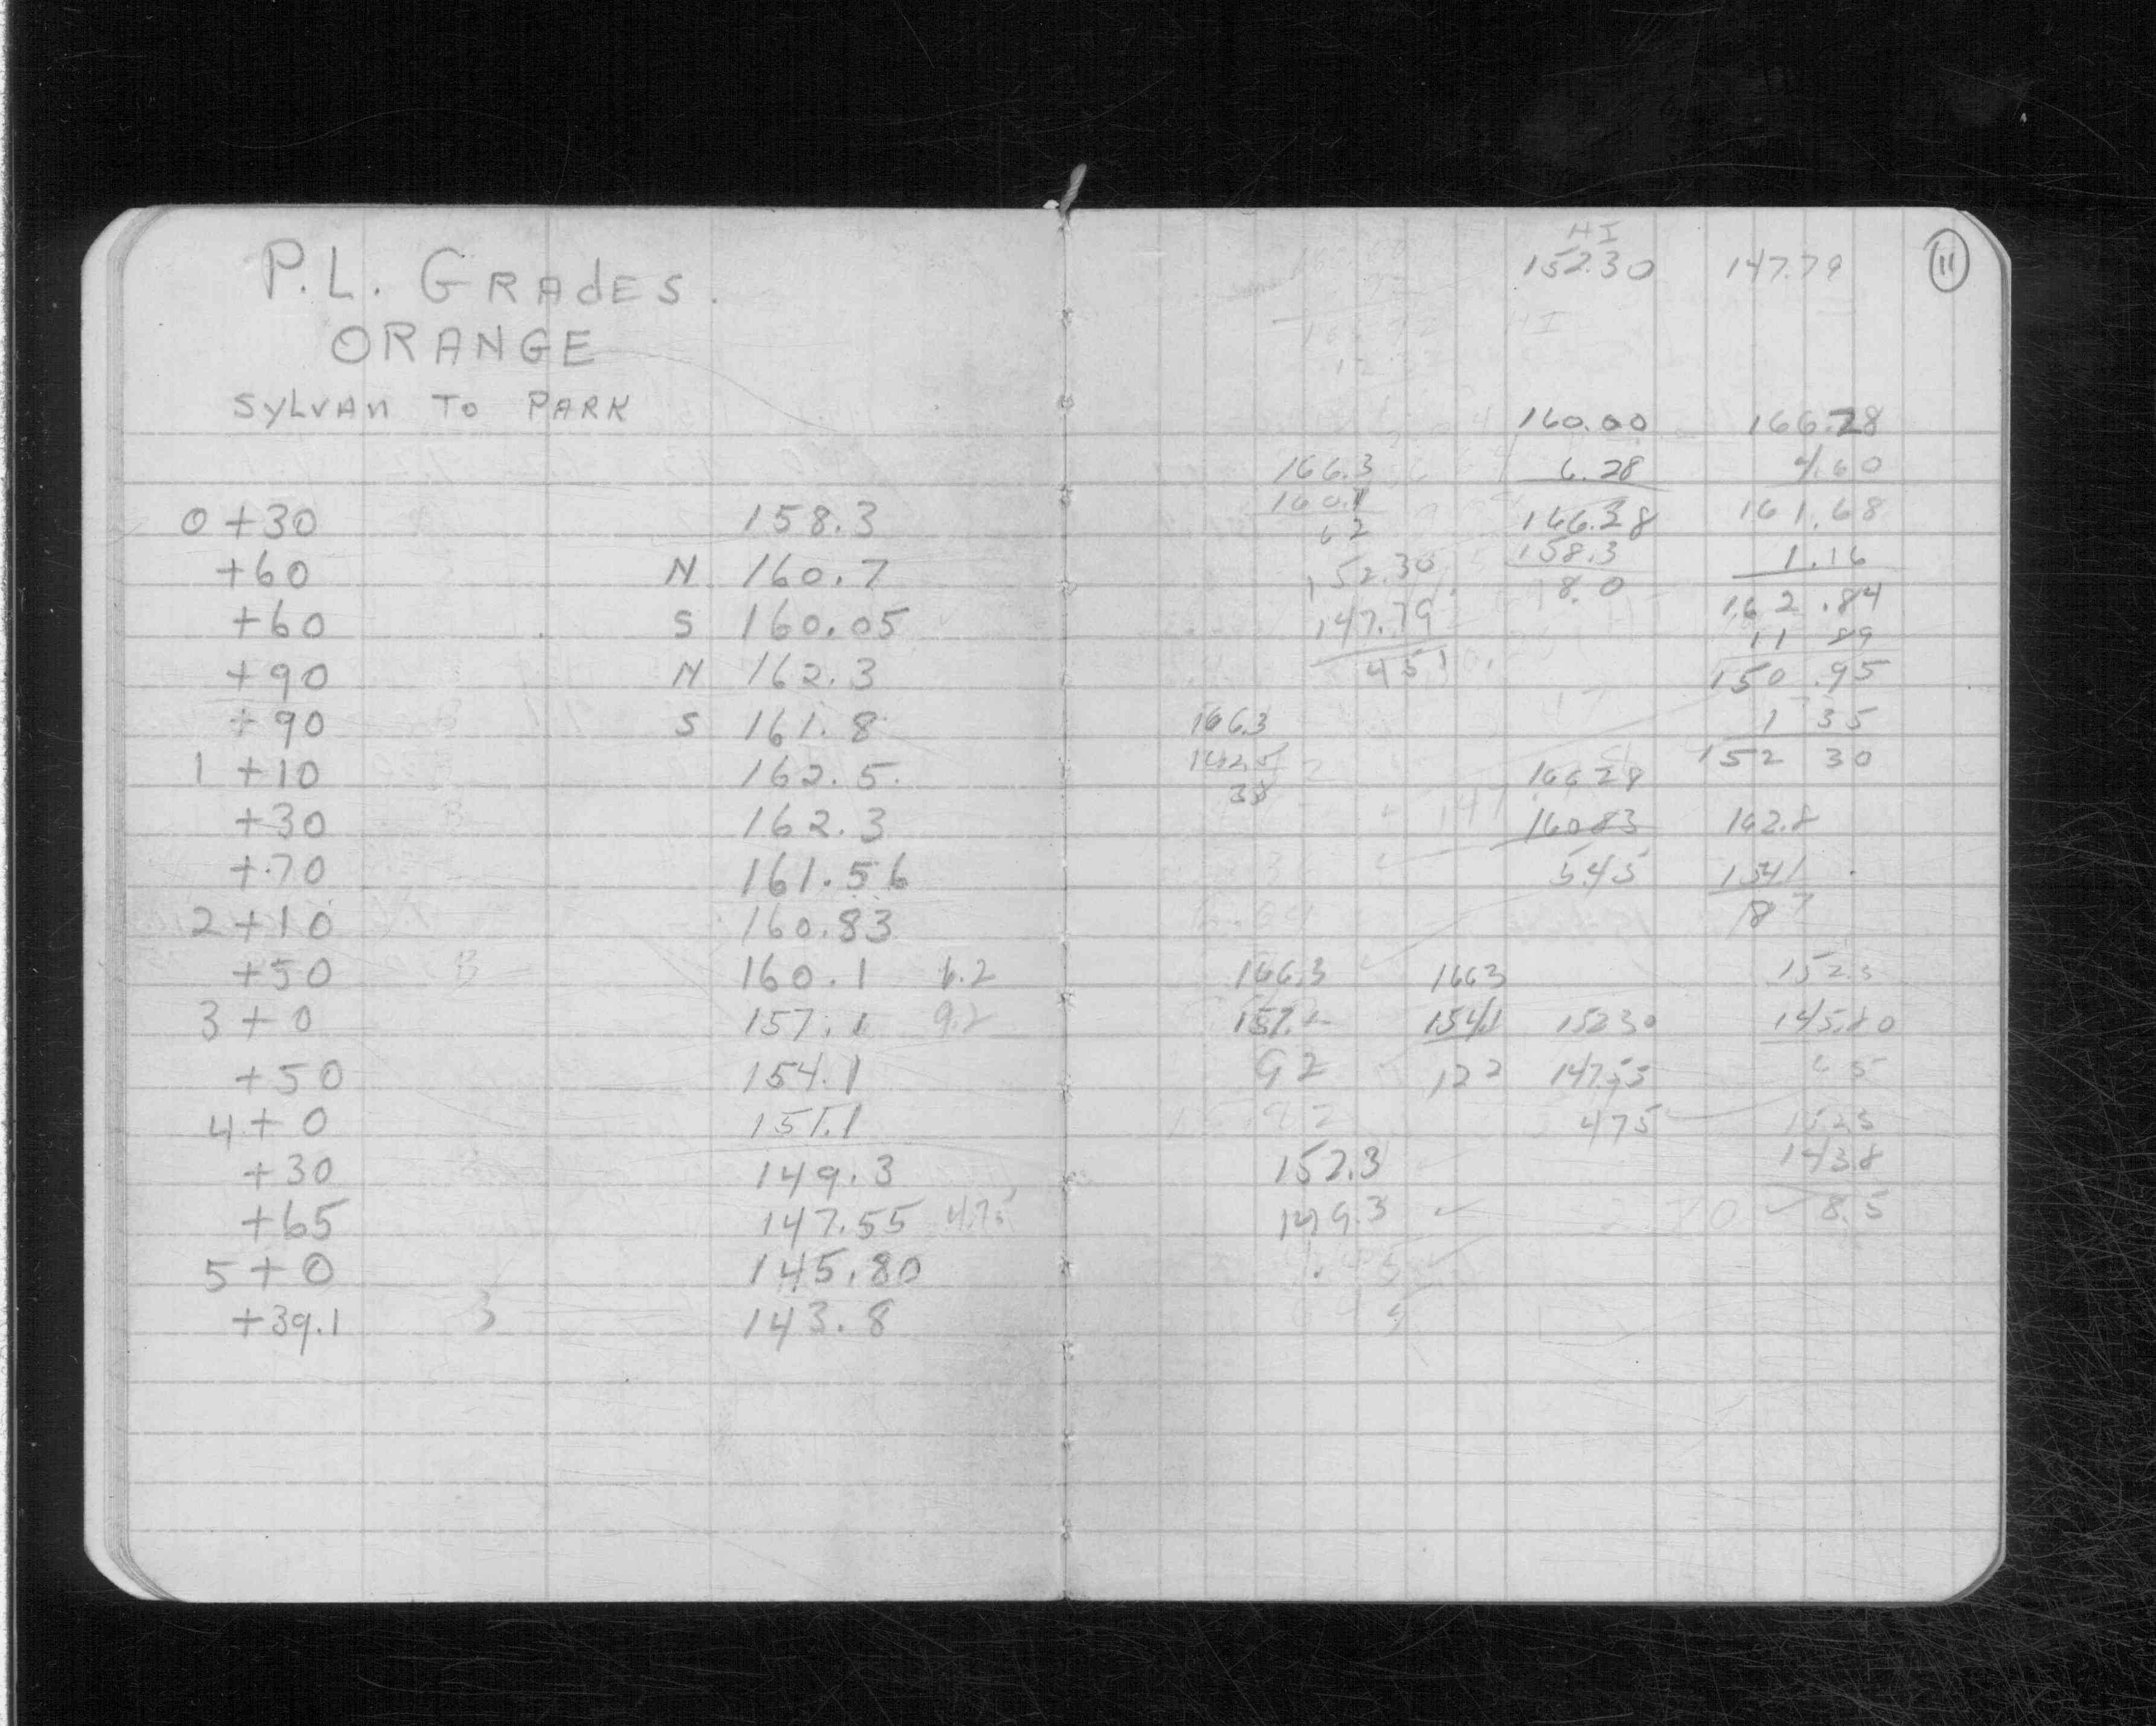 P.L. GRAdES.
ORANGE
SYLVAN TO PARK
0+30 158.3
+60 N 160.7
+60 S 160.05
+90 N 162.3
+90 S 161.8
1+10 162.5
+30 162.3
+70 161.56
2+10 160.83
+50 B 160.1 6.2
3+0 157.1 9.2
+50 154.1
4+0 151.1
+30 149.3
+65 147.55 4.75
5+0 145.80
+39.1 143.8
11
HI
152.30 147.79
160.00 166.28
166.3 6.28 4.60
160.1 166.28 161.68
62 158.3 1.16
152.30 8.0 162.84
147.79 11 89
451 150.95
166.3 1 35
162.5 166 28 152 30
38
160 83 162.8
5.45 1541
87
166.3 1663 152.3
157.1 1541 15230 145.80
92 122 147.55 6 5
475 152.3
152.3 143.8
149.3 8.5